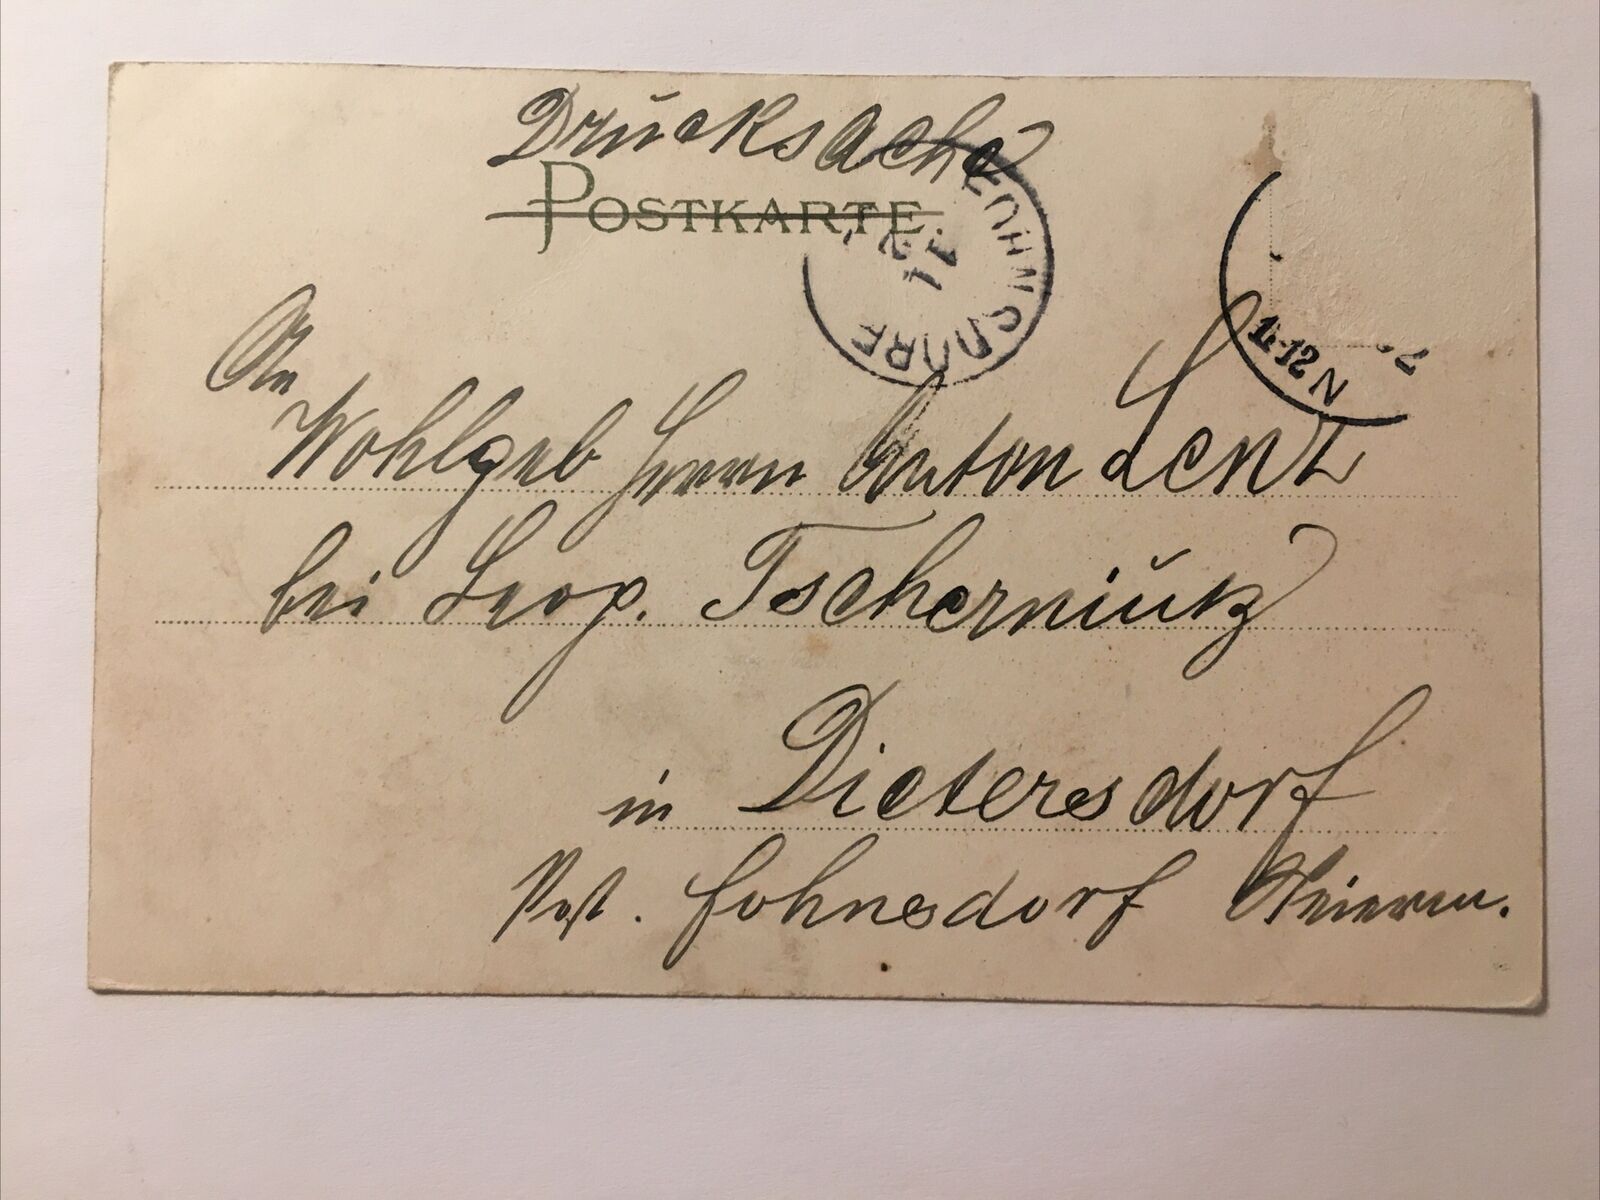 Drucksache
POSTKARTE.
FOHNSDORF
11
2
11-12 N
02
An
Wohlgeb Herrn Anton Lenz
bei Leop. Tscherniutz
in Dietersdorf
Post. Fohnsdorf Steierm.